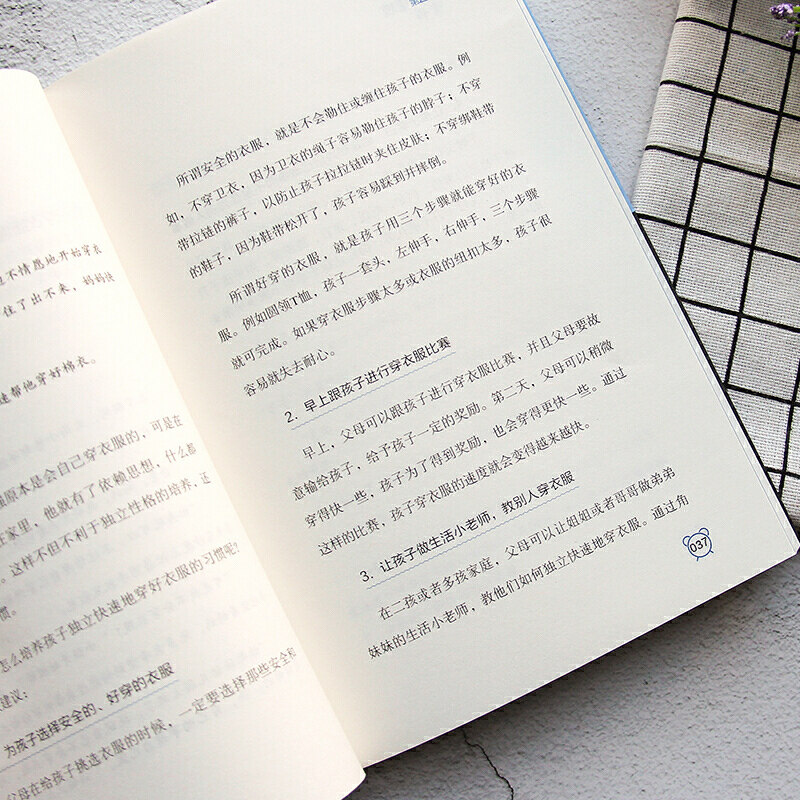 不情愿地开始穿衣
住了出不来,妈妈快
速帮他穿好棉衣。
原本是会自己穿衣服的,可是在
家里,他就有了依赖思想,什么都
。这样不但不利于独立性格的培养,还
惯。
怎么培养孩子独立快速地穿好衣服的习惯呢?
建议:
为孩子选择安全的、好穿的衣服
父母在给孩子挑选衣服的时候,一定要选择那些安全和
所谓安全的衣服,就是不会勒住或缠住孩子的衣服。例
如,不穿卫衣,因为卫衣的绳子容易勒住孩子的脖子;不穿
带拉链的裤子,以防止孩子拉拉链时夹住皮肤;不穿绑鞋带
的鞋子,因为鞋带松开了,孩子容易踩到并摔倒。
所谓好穿的衣服,就是孩子用三个步骤就能穿好的衣
服。例如圆领T恤,孩子一套头,左伸手,右伸手,三个步骤
就可完成。如果穿衣服步骤太多或衣服的纽扣太多,孩子很
容易就失去耐心。
2. 早上跟孩子进行穿衣服比赛
早上,父母可以跟孩子进行穿衣服比赛,并且父母要故
意输给孩子,给予孩子一定的奖励。第二天,父母可以稍微
穿得快一些,孩子为了得到奖励,也会穿得更快一些。通过
这样的比赛,孩子穿衣服的速度就会变得越来越快。
3. 让孩子做生活小老师,教别人穿衣服
在二孩或者多孩家庭,父母可以让姐姐或者哥哥做弟弟
妹妹的生活小老师,教他们如何独立快速地穿衣服。通过角
037